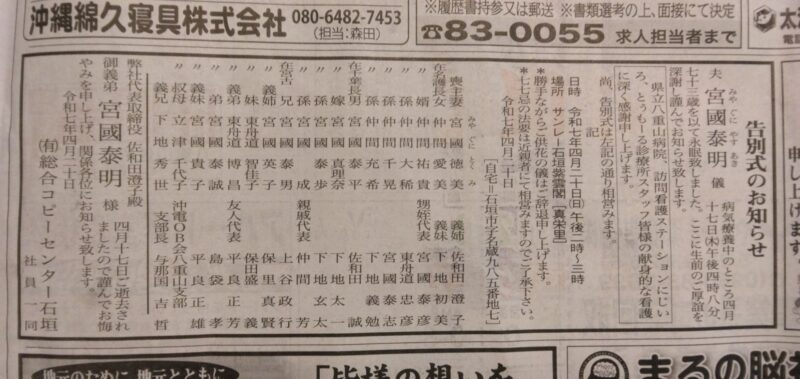 沖縄綿久寝具株式会社
080-6482-7453
(担当:森田)
※履歴書持参又は郵送 ※書類選考の上、面接にて決定
☎83-0055 求人担当者まで
告別式のお知らせ
夫 宮國泰明 儀
みやぐに やすあき
病気療養中のところ四月
十七日(木)午後四時八分、
七十三歳を以て永眠致しました。ここに生前のご厚誼を
深謝し謹んでお知らせ致します。
県立八重山病院、訪問看護ステーションにじい
ろ、とぅもーる診療所スタッフ皆様の献身的な看護
に深く感謝申し上げます。
尚、告別式は左記の通り相営みます。
記
日時 令和七年四月二十日(日)午後二時~三時
場所 サンレー石垣紫雲閣[真栄里]
*勝手ながらご供花の儀はご辞退申し上げます。
*七七忌の法要は近親者にて相営みますのでご了承下さい。
令和七年四月二十日
[自宅=石垣市字名蔵九八五番地七]
喪主 妻 宮國徳美
在名護 長女 仲間愛美
〃 婿 仲間祐貴
〃 孫 仲間大稀
〃 孫 仲間千晃
〃 孫 仲間充希
在千葉 長男 宮國泰平
〃 嫁 宮國真理奈
〃 孫 宮國泰歩
〃 孫 宮國成
在宮古 兄 宮國泰男
〃 義姉 宮國英子
〃 妹 東舟道智佳子
〃 義弟 東舟道博昌
〃 弟 宮國泰誠
〃 義妹 宮國貴子
〃 叔母 立津千代子
義兄 下地秀世
義姉 佐和田澄子
義妹 下地初美
甥姪代表 宮國泰彦
東舟道忠彦
宮國泰志
下地義勉
佐和田誠
下地太一
下地玄太
親戚代表 仲間芳
上谷政行
保里真賢
保田盛義
友人代表 平良正芳
島袋孝
平良正雄
沖電OB会八重山支部
支部長 与那国吉哲
弊社代表取締役 佐和田澄子殿
御義弟 宮國泰明 様
四月十七日ご逝去され
ましたので謹んでお悔
やみを申し上げ、関係各位にお知らせ致します。
令和七年四月二十日
(有)総合コピーセンター石垣
社員一同
地元のために 地元とともに
「皆様の想いを
まるの脳神